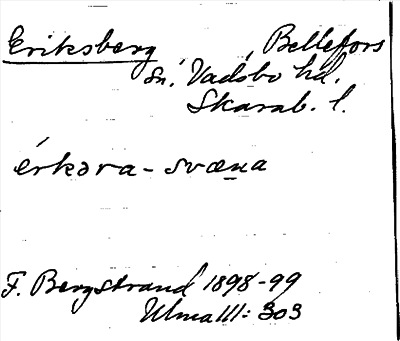 Eriksberg, Bellefors
sn, Vadsbo hd.
Skarab. l.
érkəra-svæna
F. Bergstrand 1898-99
Ulma III: 303